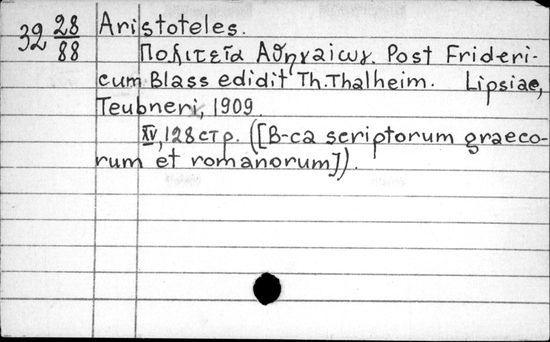 32 28/88
Aristoteles.
Πολιτεία Ἀθηναίων. Post Frideri-
cum Blass edidit Th. Thalheim. Lipsiae,
Teubneri, 1909.
XV, 128 стр. ([B-ca scriptorum graeco-
rum et romanorum]).